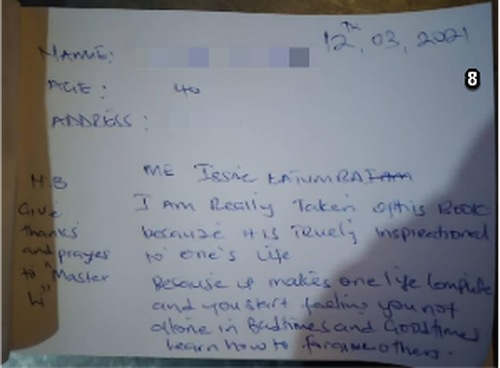 12th, 03, 2021
8
NAME:
AGE: 40
ADDRESS:
ME Jessie KATUMBA
I AM Really Taken of this BOOK
because it is Truely inspirational
to one's life
Because it makes one life complete
and you start feeling you not
allone in Badtimes and Goodtimes
learn how to forgive others.
N.B
Give
thanks
and prayes
to "Master
Li"